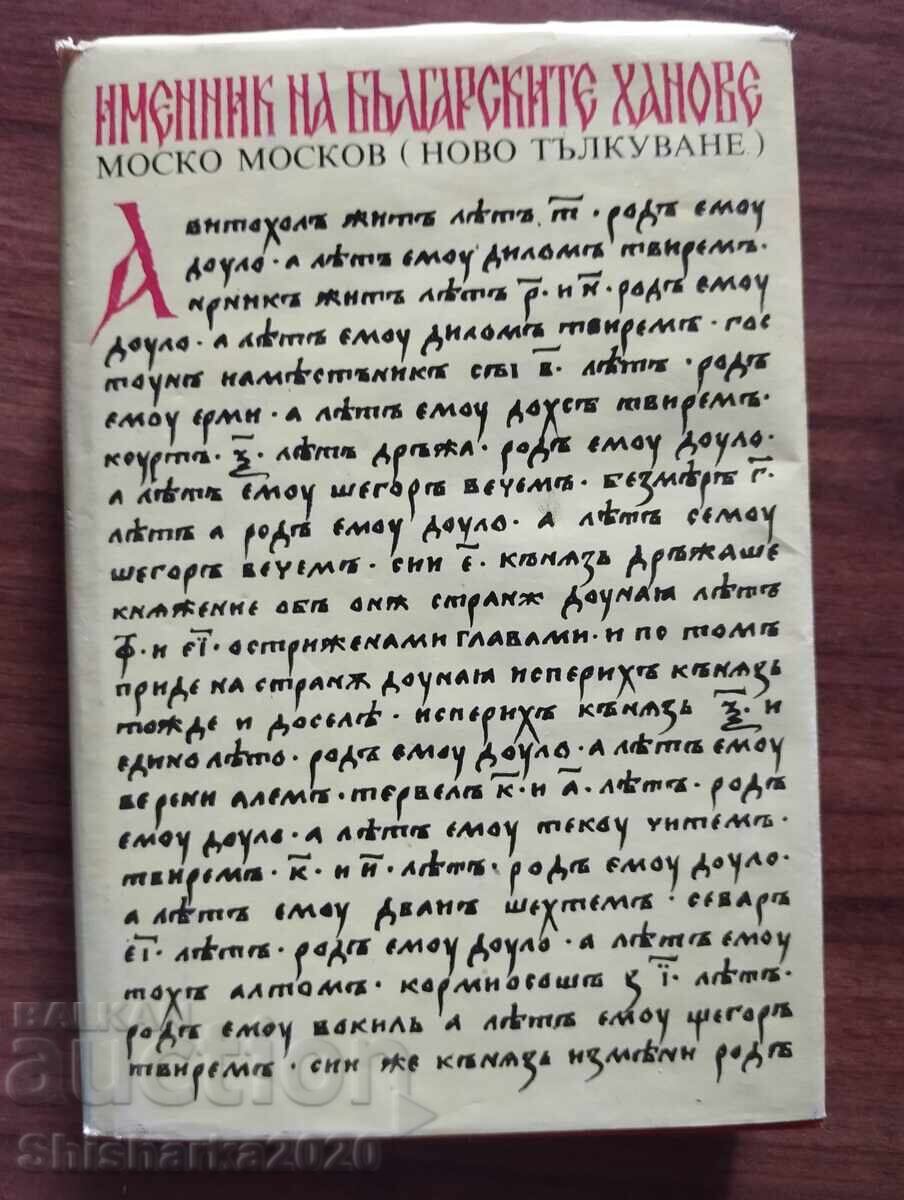 ИМЕННИК НА БЪЛГАРСКИТЕ ХАНОВЕ
МОСКО МОСКОВ (НОВО ТЪЛКУВАНЕ)
Авитохолъ житъ лѣтъ т҃ · родъ емоу
доуло · а лѣтъ емоу диломъ твиремъ ·
ирникъ житъ лѣтъ р҃ · и н҃ · родъ емоу
доуло · а лѣтъ емоу диломъ твиремъ · гос
тоунъ намѣстъникъ сьі в҃ · лѣтъ · родъ
емоу ерми · а лѣтъ емоу дохсъ твиремъ ·
коуртъ · ѯ҃ · лѣтъ дръжа · родъ емоу доуло ·
а лѣтъ емоу шегоръ вечемъ · безмѣръ г҃ ·
лѣтъ а родъ емоу доуло · а лѣтъ семоу
шегоръ вечемъ · сии е҃ · кънѧзь дръжаше
кнѧжение объ онѫ странѫ доунаꙗ лѣтъ
ф҃ · и еі҃ · остриженами главами · и по томъ
приде на странѫ доунаꙗ исперихъ кънѧзь
тожде и доселѣ · исперихъ кънѧзь ѯ҃ · и
едино лѣто · родъ емоу доуло · а лѣтъ емоу
верени алемъ · тервелъ к҃ · и а҃ · лѣтъ · родъ
емоу доуло · а лѣтъ емоу текоу читемъ ·
твиремъ · к҃ · и и҃ · лѣтъ · родъ емоу доуло ·
а лѣтъ емоу дванъ шехтемъ · севаръ
еі҃ · лѣтъ · родъ емоу доуло · а лѣтъ емоу
тохъ алтомъ · кормисошь ꙁ ї҃ · лѣтъ ·
родъ емоу вокиль а лѣтъ емоу шегоръ
твиремъ · сии же кънѧзь измѣни родъ
BALKAN
auction
Shisharka2020